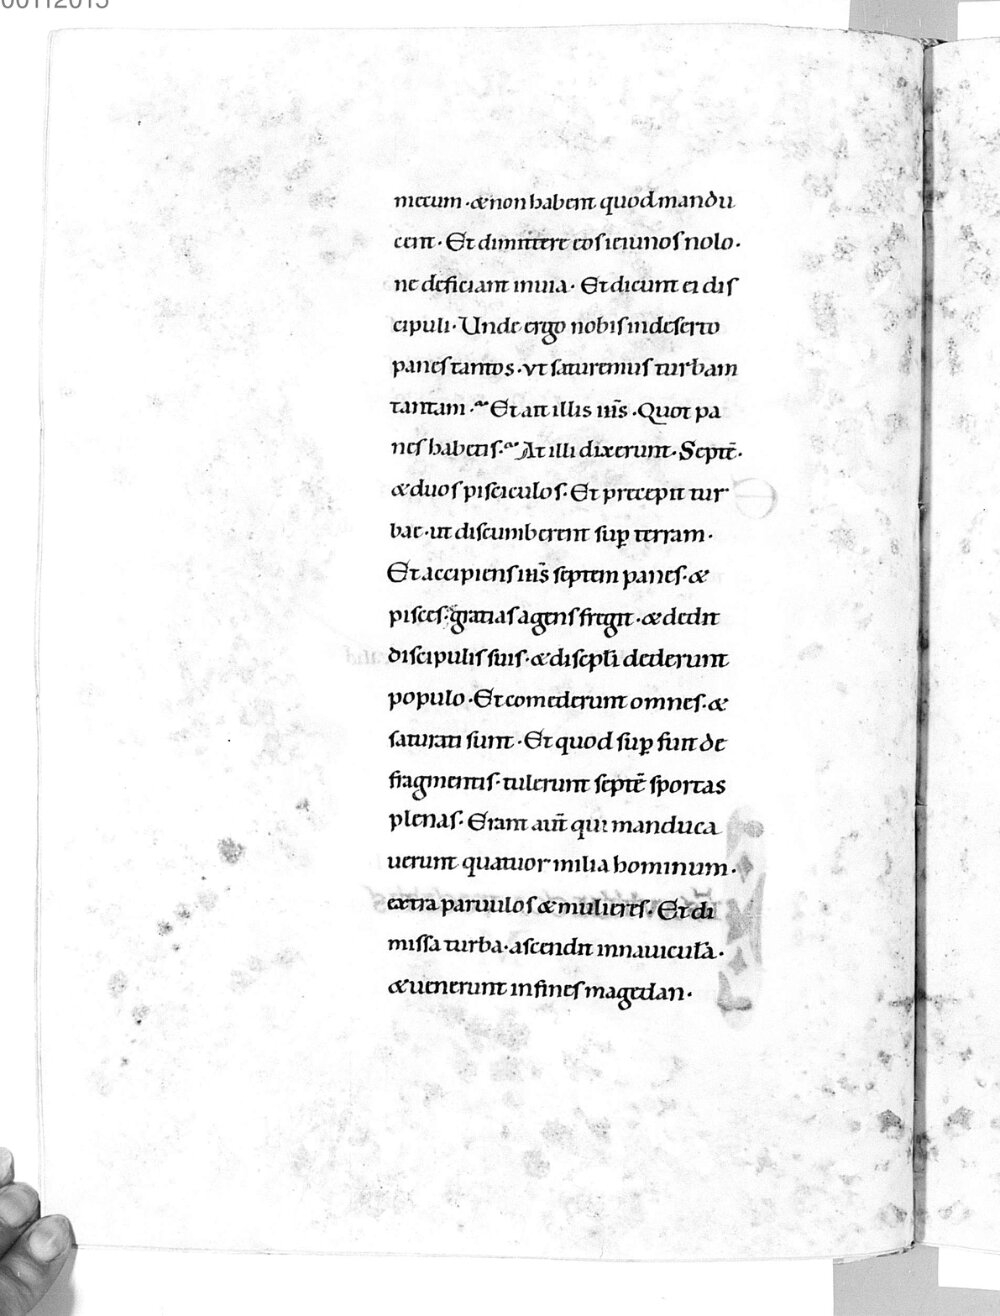 00112015
mecum · & non habent quod mandu
cent · Et dimittere eos ieiunos nolo ·
ne deficiant in uia · Et dicunt ei dis
cipuli · Unde ergo nobis in deserto
panes tantos · vt saturemus turbam
tantam · Et ait illis ihs̄ · Quot pa
nes habetis · At illi dixerunt · Septē ·
& duos pisciculos · Et precepit tur
bae · ut discumberent sup̱ terram ·
Et accipiens ihs̄ septem panes · &
pisces · gratias agens fregit · & dedit
discipulis suis · & discipl̄i dederunt
populo · Et comederunt omnes · &
saturati sunt · Et quod sup̱ fuit de
fragmentis · tulerunt septē sportas
plenas · Erant aut̄ qui manduca
uerunt quatuor milia hominum ·
extra paruulos & mulieres · Et di
missa turba · ascendit in nauiculā ·
& uenerunt in fines magedan ·